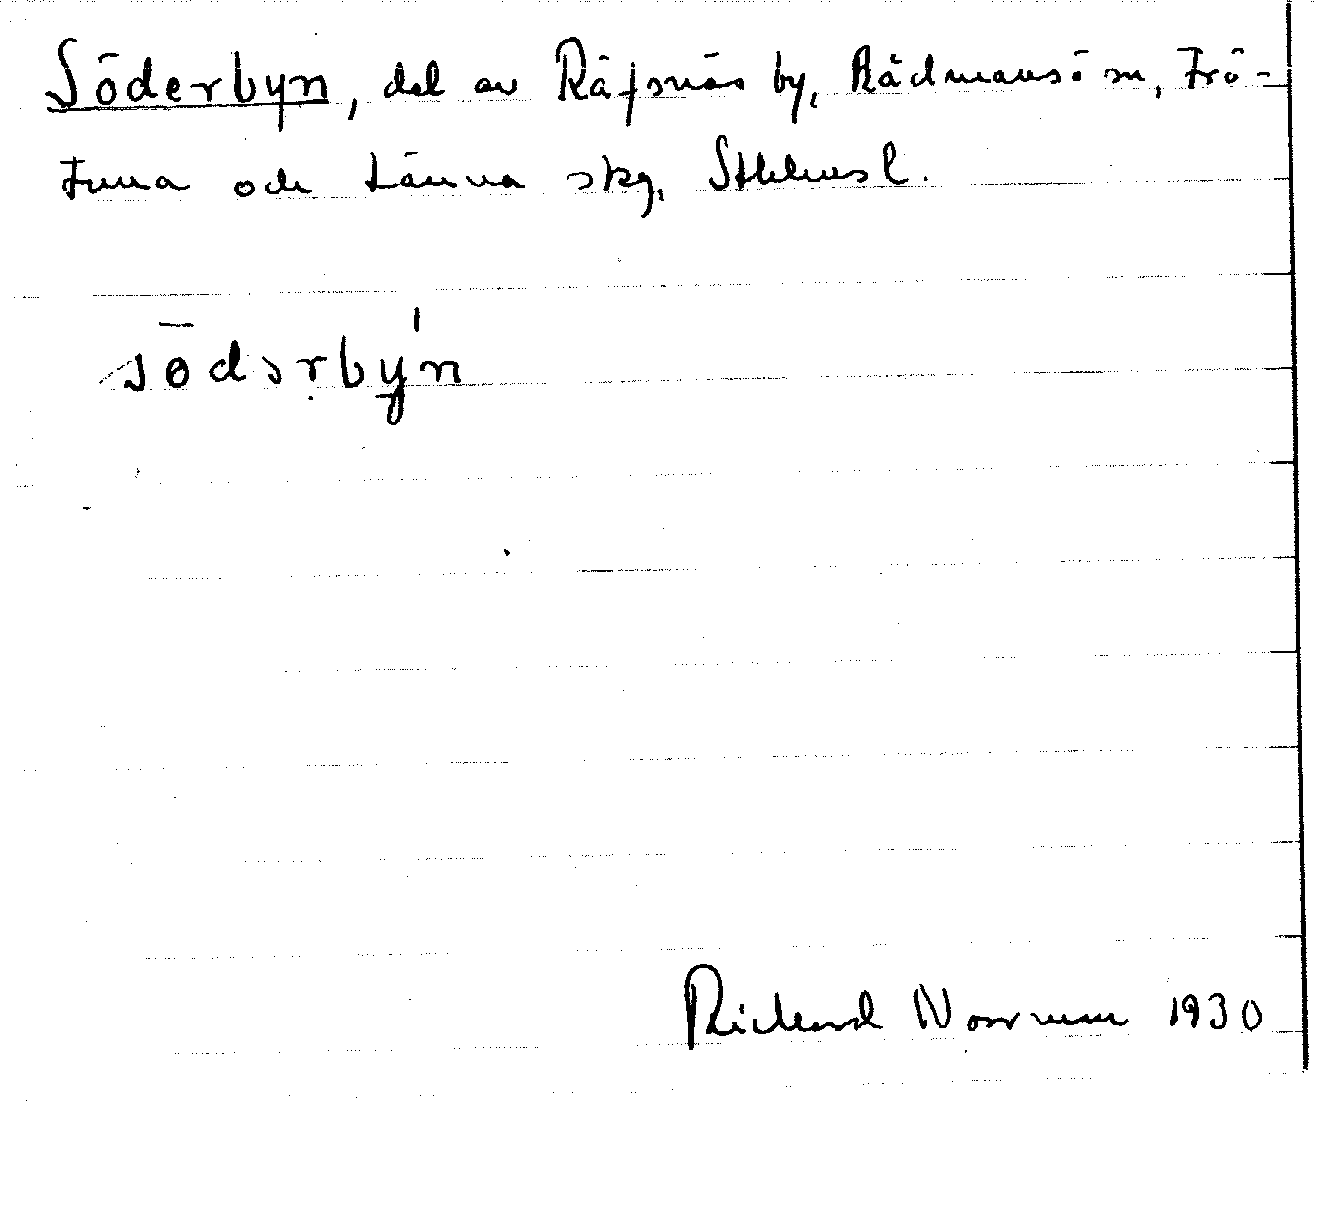 Söderbyn, del av Räfsnäs by, Rådmansö sn, Frö-
tuna och Länna skg, Sthlms l.
sō̈dərbýn
Rickard Norrman 1930